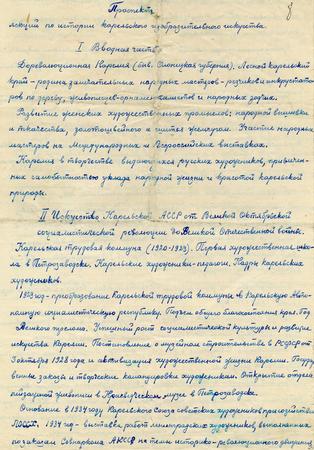 Проспект
лекций по истории карельского изобразительного искусства.
I Вводная часть.
Дореволюционная Карелия (быв. Олонецкая губерния). Лесной карельский
край - родина замечательных народных мастеров - резчиков и инкрустато-
ров по дереву, живописцев-орнаменталистов и народных зодчих.
Развитие женских художественных промыслов; народной вышивки
и ткачества, золотошвейного и шитья жемчугом. Участие народных
мастеров на Международных и Всероссийских выставках.
Карелия в творчестве выдающихся русских художников, привлечен-
ных самобытностью уклада народной жизни и красотой карельской
природы.
II Искусство Карельской АССР от Великой Октябрьской
социалистической революции до Великой Отечественной войны.
Карельская трудовая коммуна (1920-1923). Первая художественная шко-
ла в Петрозаводске. Карельские художники-педагоги. Кадры карельских
художников.
1923 год - преобразование Карельской трудовой коммуны в Карельскую Авто-
номную социалистическую республику. Подъем общего благосостояния края. Год
Великого перелома. Успешный рост социалистической культуры и развитие
искусства Карелии. Постановление о музейном строительстве в РСФСР от
октября 1928 года и активизация художественной жизни Карелии. Государ-
венные заказы и творческие командировки художникам. Открытие отдела
живописи в Краеведческом музее в Петрозаводске.
Основание в 1934 году Карельского Союза советских художников
1937 год - выставка работ ленинградских художников, выполненных
по заказам Совнаркома АКССР на темы историко-революционного движения